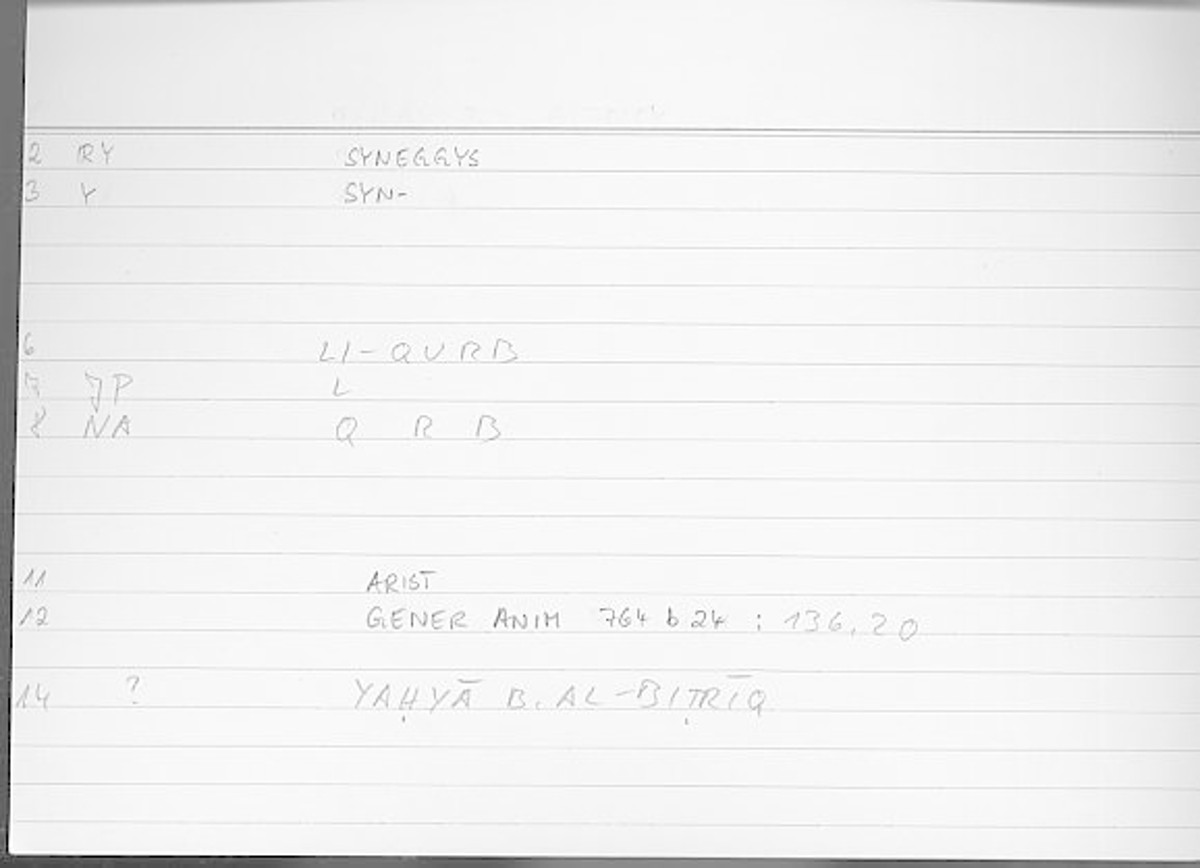 2 RY SYNEGGYS
3 Y SYN-
6 LI-QURB
7 JP L
8 NA Q R B
11 ARIST
12 GENER ANIM 764 b 24 : 136,20
14 ? YAḤYĀ B. AL-BIṬRĪQ